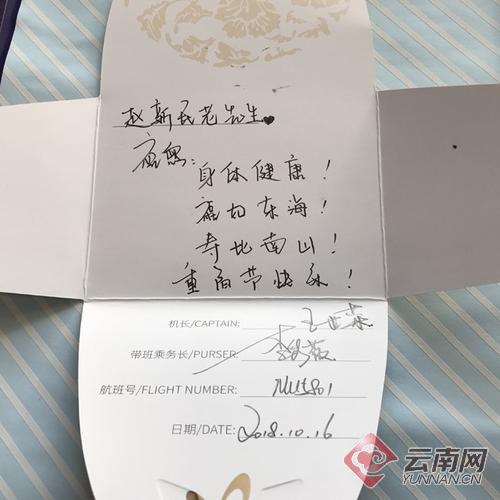 赵新民老先生
祝您：
身体健康！
福如东海！
寿比南山！
重阳节快乐！
机长/CAPTAIN:
带班乘务长/PURSER:
航班号/FLIGHT NUMBER: MU5801
日期/DATE: 2018.10.16
云南网
YUNNAN.CN